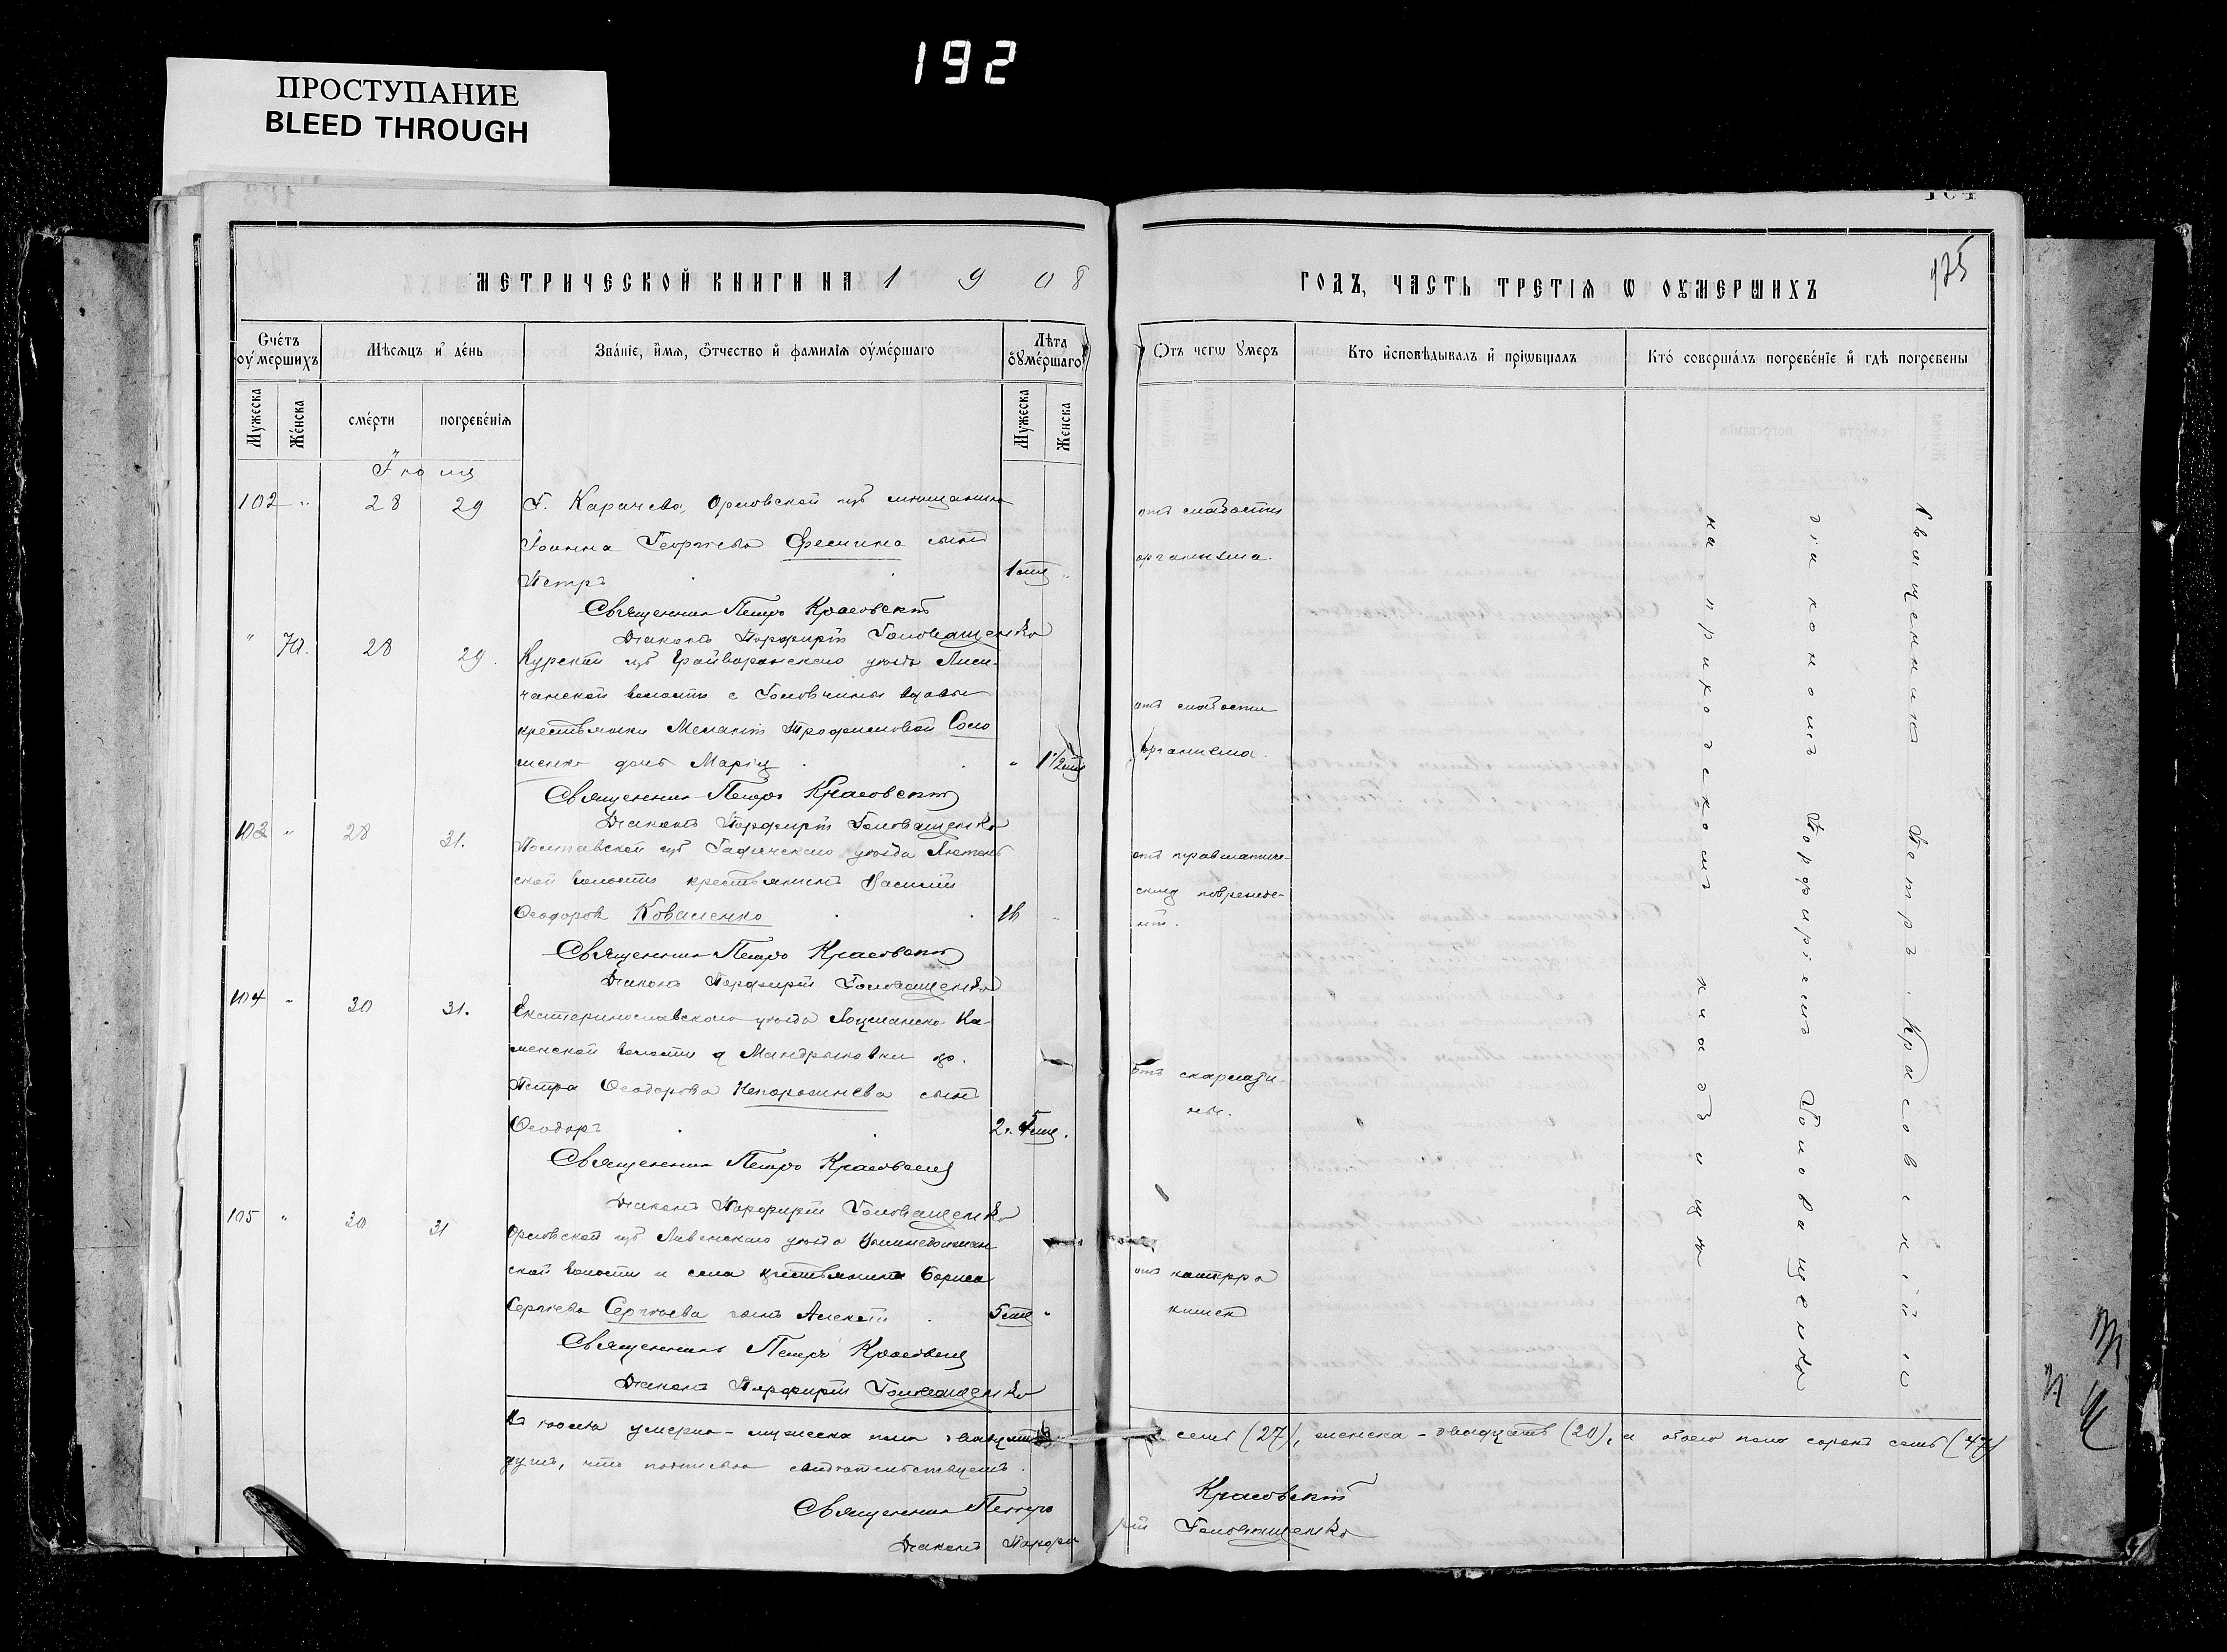 192
ПРОСТУПАНИЕ
BLEED THROUGH
МЕТРИЧЕСКОЙ КНИГИ НА 1908
ГОДЪ, ЧАСТЬ ТРЕТІЯ Ѡ ОУМЕРШИХЪ
Счетъ оумершихъ
Мѣсяцъ и день
Званіе, имя, отчество и фамилія оумершаго
Лѣта оумершаго
Отъ чегѡ умеръ
Кто исповѣдывалъ и пріѡбщалъ
Кто совершалъ погребеніе и гдѣ погребены
Мужеска
Женска
смерти
погребенія
Мужеска
Женска
Іюля
102 " 28 29 Г. Карачева, Орловской губ мѣщанина
отъ слабости
Іоанна Георгіева Фетина сынъ
организма.
Петръ 1 мѣс "
Священникъ Петръ Красовскій
Діаконъ Порфирій Головащенко
" 70. 28 29. Курской губ Грайворонскаго уѣзда Лиси-
чанской волости с Головчины вдовы
отъ слабости
крестьянки Меланіи Трофимовой Соло
организма.
менко дочь Марія " 1 1/2 мѣс
Священникъ Петръ Красовскій
Діаконъ Порфирій Головащенко
103 " 28 31. Полтавской губ Гадячскаго уѣзда Лютень
отъ травматиче-
ской волости крестьянинъ Василій
скихъ поврежде-
Ѳеодоровъ Коваленко 16 "
ній.
Священникъ Петръ Красовскій
Діаконъ Порфирій Головащенко
104 " 30 31. Екатеринославскаго уѣзда Лоцманско Ка-
менской волости д Мандрыковки кр.
отъ скарлати-
Петра Ѳеодорова Непорожнева сынъ
ны.
Ѳеодоръ 2 г. 5 мѣс.
Священникъ Петръ Красовскій
Діаконъ Порфирій Головащенко
105 " 30 31 Орловской губ Ливенскаго уѣзда
ской волости и села крестьянина Бориса
отъ катарра
Сергіева Сергѣева сынъ Алексій 5 мѣс "
кишекъ
Священникъ Петръ Красовскій
Діаконъ Порфирій Головащенко
Священникъ Петръ Красовскій съ
діакономъ Порфиріемъ Головащенко
на приходскомъ кладбищѣ
Въ іюлѣ умерло - мужеска пола двадцать семь (27), женска - двадцать (20), а обоего пола сорокъ семь (47)
душъ, что подписью свидѣтельствуемъ.
Священникъ Петръ Красовскій
Діаконъ Порфирій Головащенко